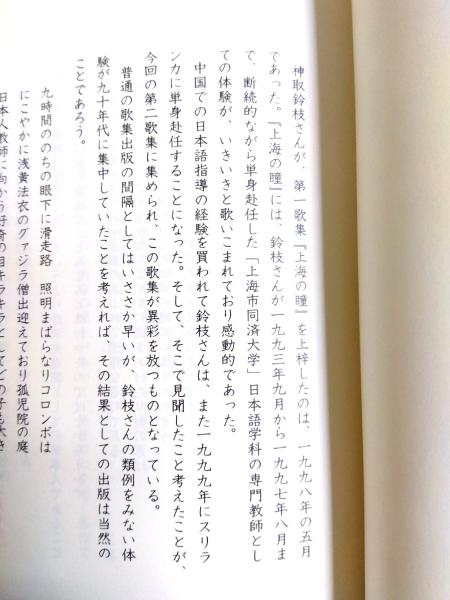 神取鈴枝さんが、第一歌集『上海の瞳』を上梓したのは、一九九八年の五月
であった。『上海の瞳』には、鈴枝さんが一九九三年九月から一九九七年八月ま
で、断続的ながら単身赴任した「上海市同済大学」日本語学科の専門教師とし
ての体験が、いきいきと歌いこまれており感動的であった。
中国での日本語指導の経験を買われて鈴枝さんは、また一九九九年にスリラ
ンカに単身赴任することになった。そして、そこで見聞したこと考えたことが、
今回の第二歌集に集められ、この歌集が異彩を放つものとなっている。
普通の歌集出版の間隔としてはいささか早いが、鈴枝さんの類例をみない体
験が九十年代に集中していたことを考えれば、その結果としての出版は当然の
ことであろう。
九時間ののちの眼下に滑走路 照明まばらなりコロンボは
にこやかに浅黄法衣のグァジラ僧出迎えており孤児院の庭
日本人教師に向かう好奇の目キラキラとしてどの子も大き